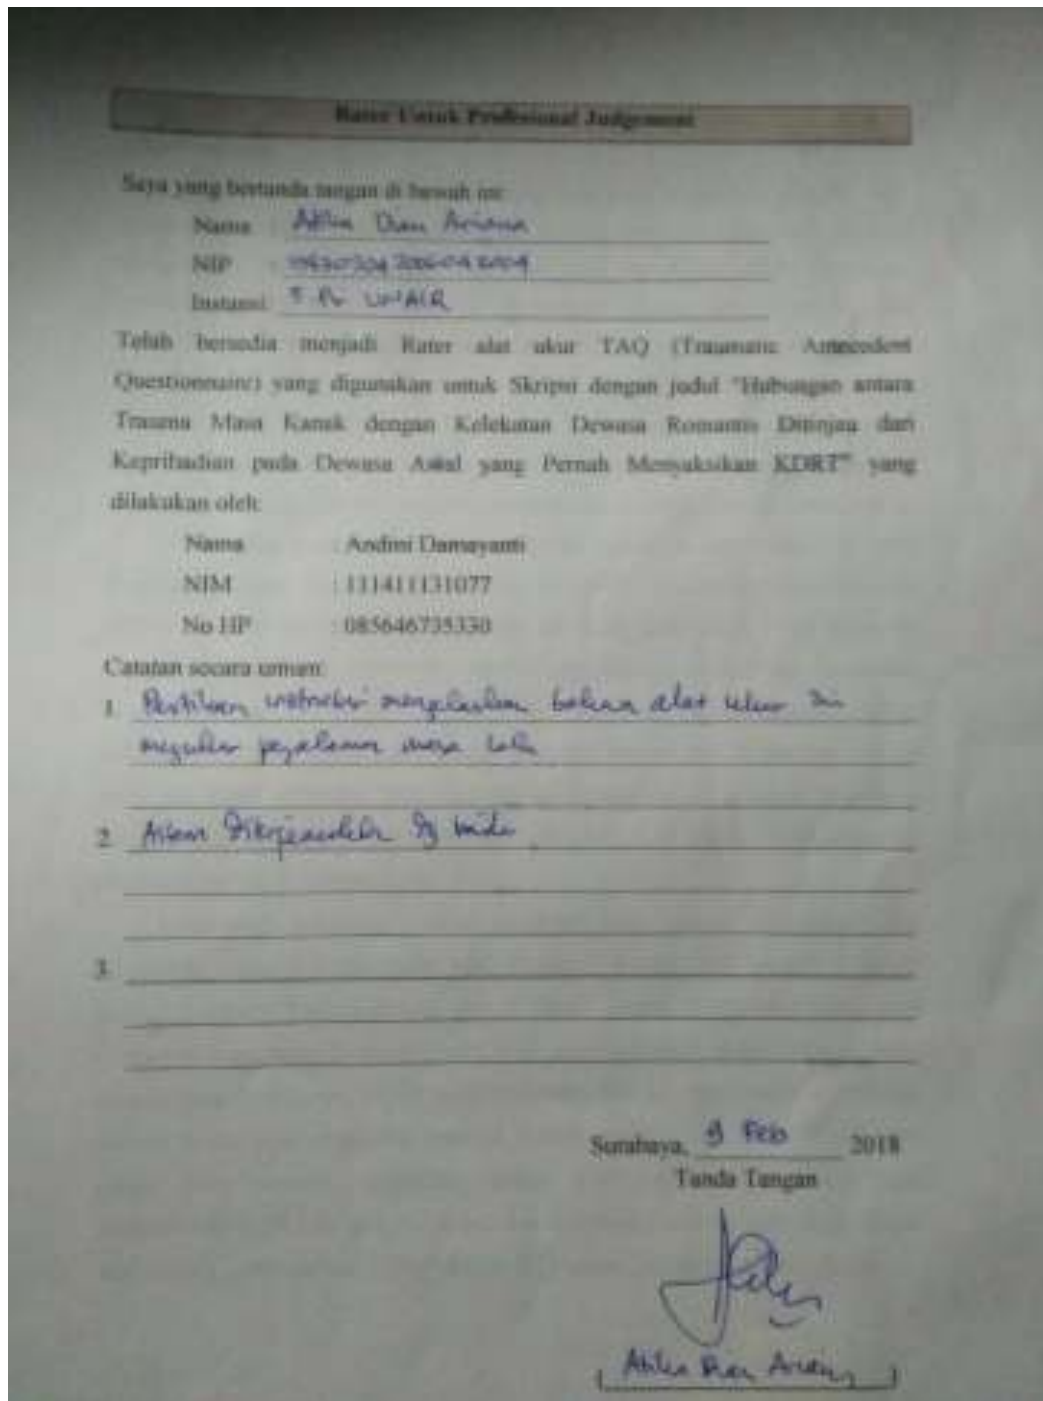 Rater Untuk Profesional Judgement
Saya yang bertanda tangan di bawah ini:
Nama : Atika Dian Ariana
NIP :
Instansi: UNAIR
Telah bersedia menjadi Rater alat ukur TAQ (Traumatic Antecedent
Questionnaire) yang digunakan untuk Skripsi dengan judul "Hubungan antara
Trauma Masa Kanak dengan Kelekatan Dewasa Romantis Ditinjau dari
Kepribadian pada Dewasa Awal yang Pernah Menyaksikan KDRT" yang
dilakukan oleh:
Nama : Andini Damayanti
NIM : 111411131077
No HP : 085646735330
Catatan secara umum:
1. instruksi menjelaskan bahwa alat ukur ini
mengukur pengalaman masa lalu
2.
3.
Surabaya, 9 Feb 2018
Tanda Tangan
( Atika Dian Ariana )